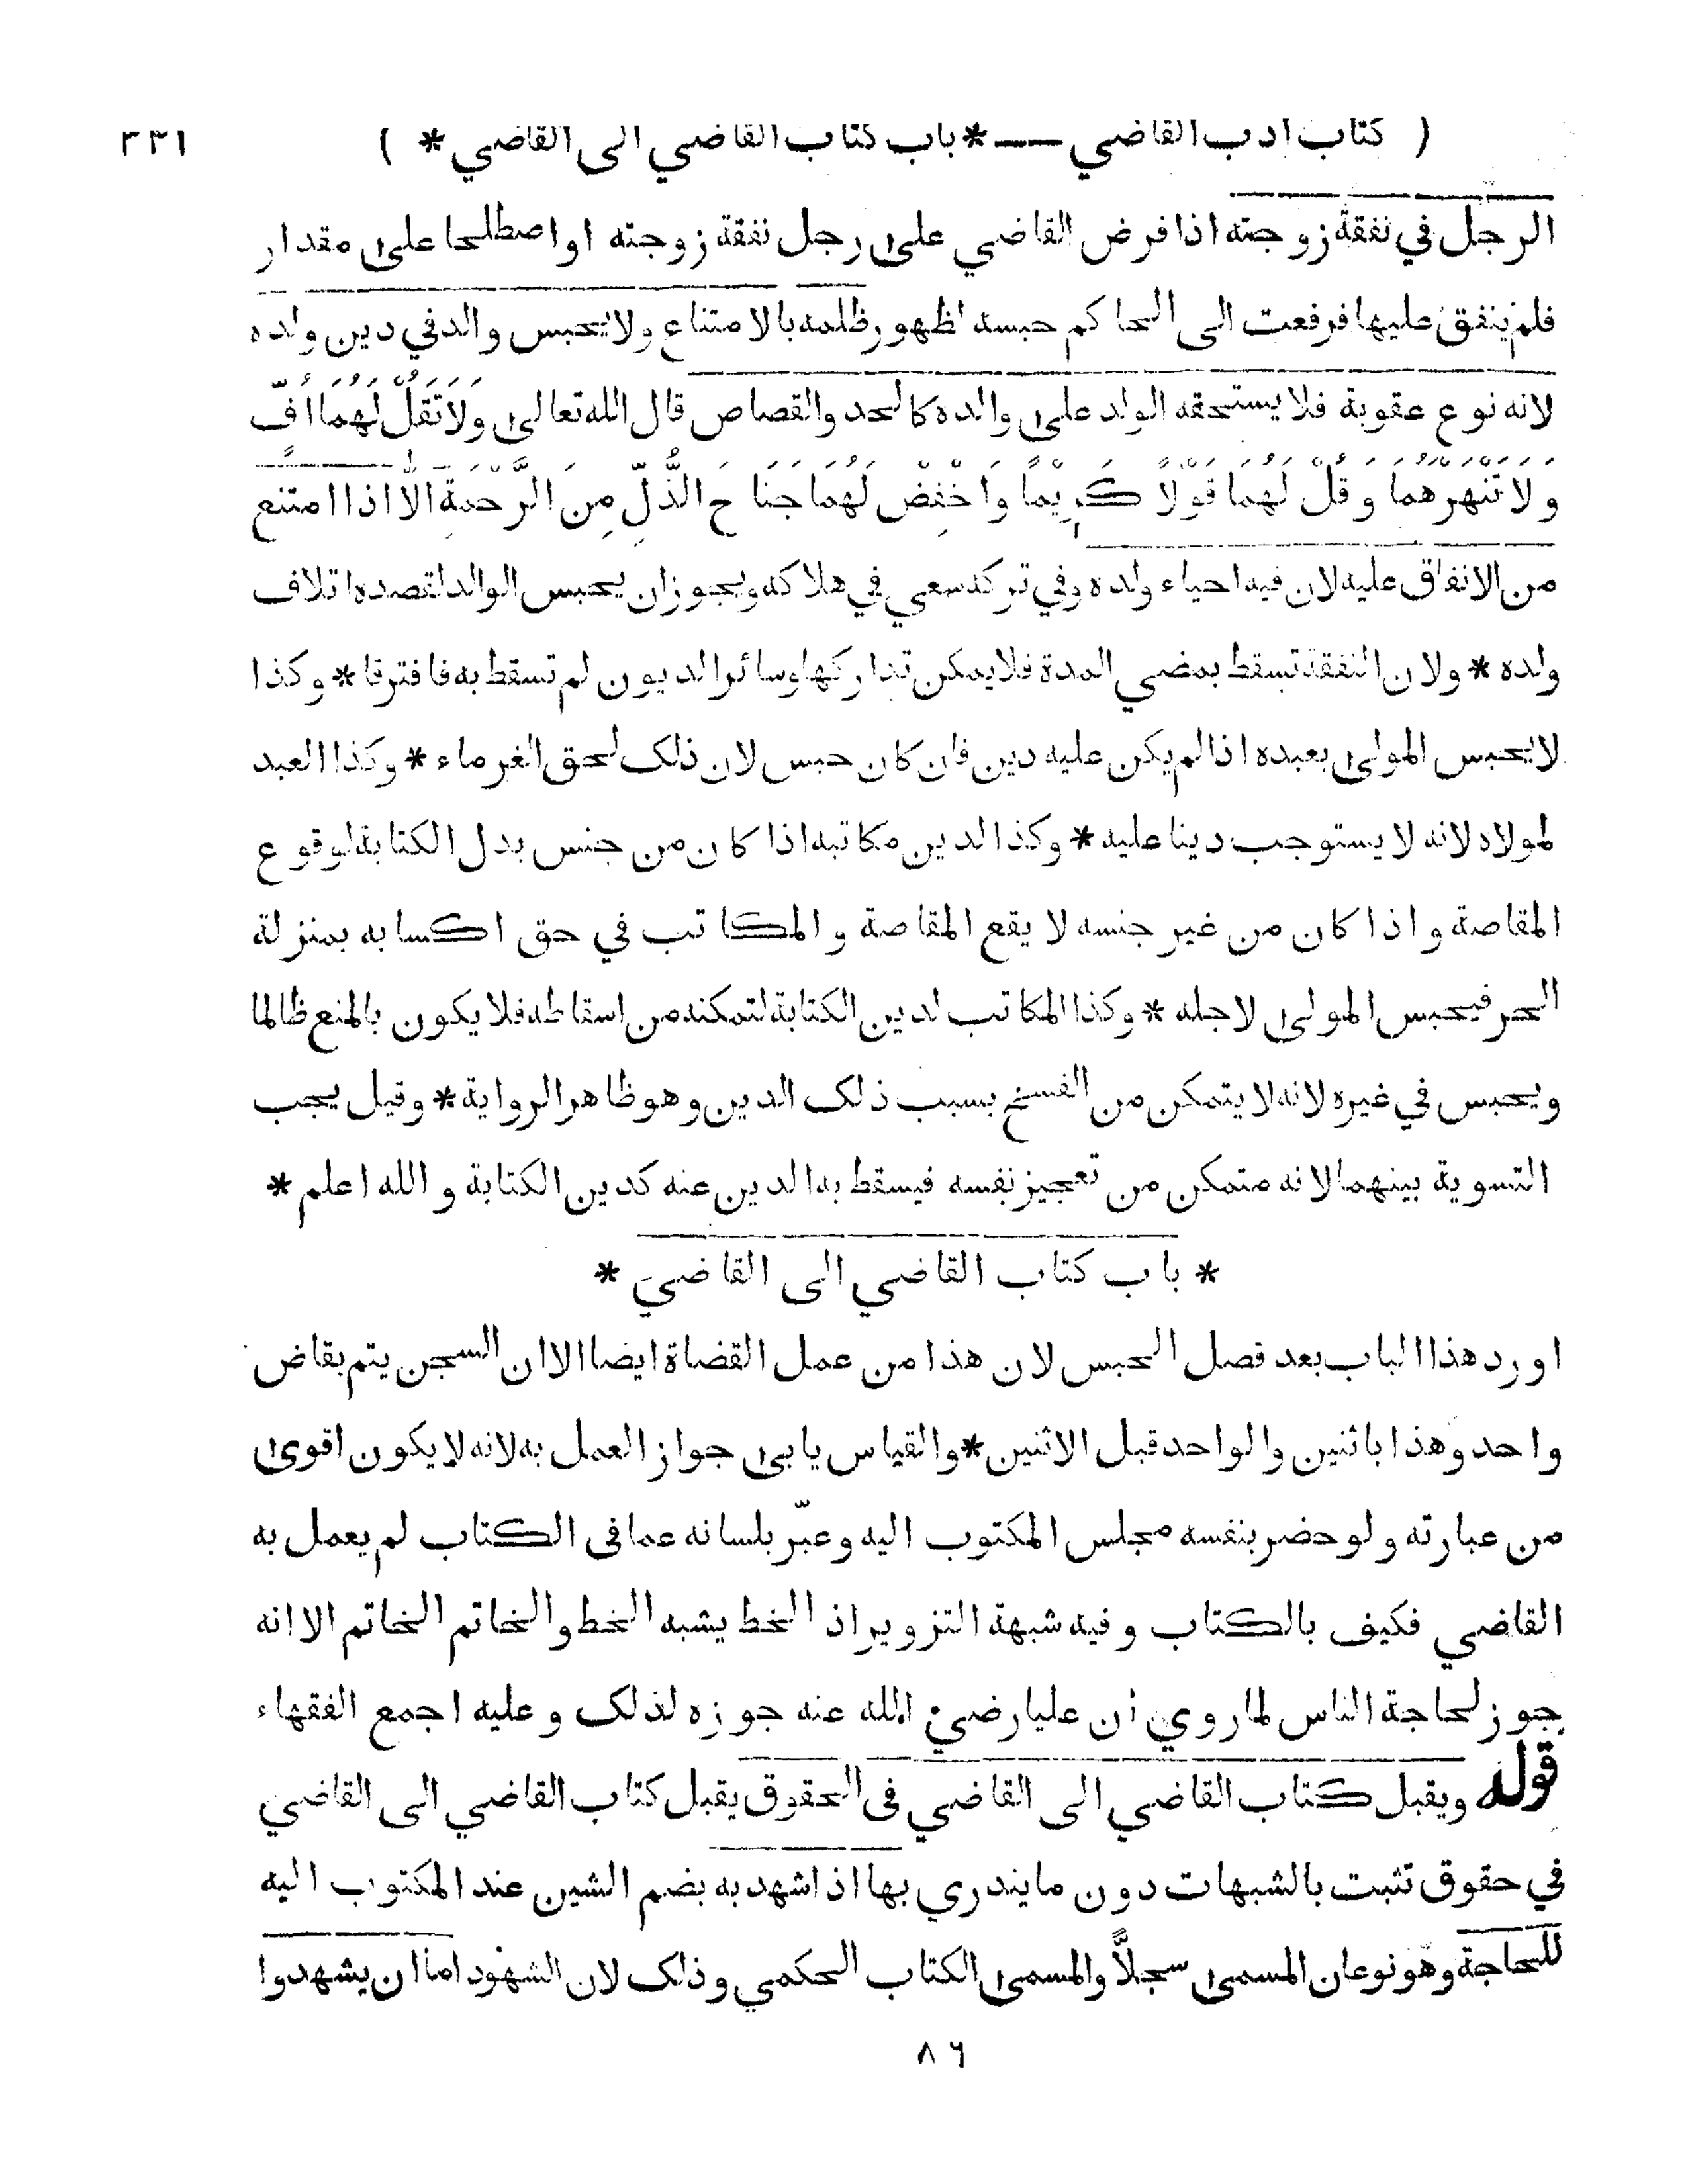 ( كتاب ادب القاضي — * باب كتاب القاضي الى القاضي * ) ٣٣١
الرجل في نفقة زوجته اذا فرض القاضي على رجل نفقة زوجته او اصطلحا على مقدار
فلم ينفق عليها فرفعت الى الحاكم حبسه لظهور ظلمه بالامتناع ولا يحبس والد في دين ولده
لانه نوع عقوبة فلا يستحقه الولد على والده كالحد والقصاص قال الله تعالى وَلَا تَقُلْ لَهُمَا أُفٍّ
وَلَا تَنْهَرْهُمَا وَقُلْ لَهُمَا قَوْلًا كَرِيمًا وَاخْفِضْ لَهُمَا جَنَاحَ الذُّلِّ مِنَ الرَّحْمَةِ الا اذا امتنع
من الانفاق عليه لان فيه احياء ولده وفي تركه سعي في هلاكه ويجوز ان يحبس الوالد لقصده اتلاف
ولده * ولان النفقة تسقط بمضي المدة فلا يمكن تداركها وسائر الديون لم تسقط به فافترقا * وكذا
لا يحبس المولى بعبده اذا لم يكن عليه دين فان كان حبس لان ذلك لحق الغرماء * وكذا العبد
لمولاه لانه لا يستوجب دينا عليه * وكذا لدين مكاتبه اذا كان من جنس بدل الكتابة لوقوع
المقاصة واذا كان من غير جنسه لا يقع المقاصة والمكاتب في حق اكسابه بمنزلة
الحر فيحبس المولى لاجله * وكذا المكاتب لدين الكتابة لتمكنه من اسقاطه فلا يكون بالمنع ظالما
ويحبس في غيره لانه لا يتمكن من الفسخ بسبب ذلك الدين وهو ظاهر الرواية * وقيل يجب
التسوية بينهما لانه متمكن من تعجيز نفسه فيسقط به الدين عنه كدين الكتابة والله اعلم *
* باب كتاب القاضي الى القاضي *
اورد هذا الباب بعد فصل الحبس لان هذا من عمل القضاة ايضا الا ان السجن يتم بقاض
واحد وهذا باثنين والواحد قبل الاثنين * والقياس يابى جواز العمل به لانه لا يكون اقوى
من عبارته ولو حضر بنفسه مجلس المكتوب اليه وعبّر بلسانه عما فى الكتاب لم يعمل به
القاضي فكيف بالكتاب وفيه شبهة التزوير اذ الخط يشبه الخط والخاتم الخاتم الا انه
جوز لحاجة الناس لما روي ان عليا رضي الله عنه جوزه لذلك وعليه اجمع الفقهاء
قوله ويقبل كتاب القاضي الى القاضي فى الحقوق يقبل كتاب القاضي الى القاضي
في حقوق تثبت بالشبهات دون ما يندري بها اذا شهد به بضم الشين عند المكتوب اليه
للحاجة وهو نوعان المسمى سجلًّا والمسمى الكتاب الحكمي وذلك لان الشهود اما ان يشهدوا
٨٦